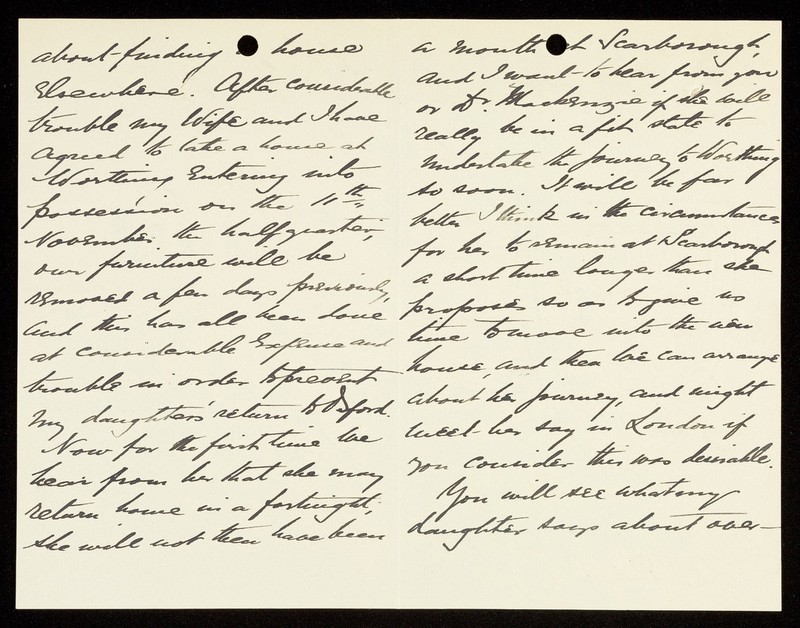 about finding a house
Elsewhere. After considerable
trouble my Wife and I have
agreed to take a house at
Worthing Entering into
possession on the 11th
November the half quarter,
our furniture will be
removed a few days previously,
and this has all been done
at considerable Expense and
trouble in order to prevent
my daughters' return to Oxford.
Now for the first time we
hear from her that she may
return home in a fortnight,
she will not then have been
a month at Scarborough,
and I want to hear from you
or Dr. Mackenzie if she will
really be in a fit state to
undertake the journey to Worthing
so soon. It will be far
better I think in the circumstances
for her to remain at Scarborough
a short time longer than she
proposes so as to give us
time to move into the new
house, and then we can arrange
about her journey, and might
meet her say in London if
you consider this was desirable.
You will see what my
daughter says about over-